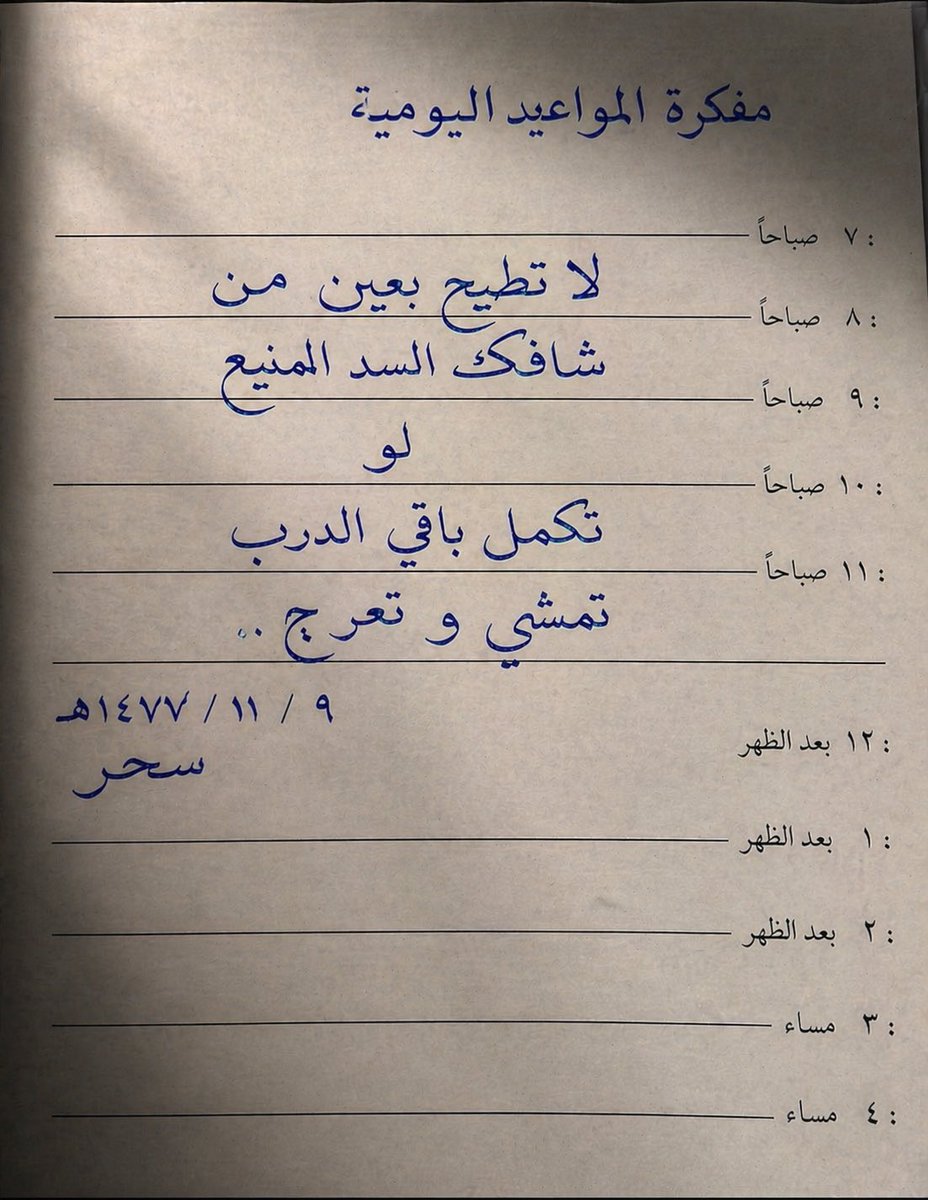 مفكرة المواعيد اليومية
٧ صباحاً :
لا تطيح بعين من
٨ صباحاً :
شافك السد المنيع
٩ صباحاً :
لو
١٠ صباحاً :
تكمل باقي الدرب
١١ صباحاً :
تمشي و تعرج ..
٩ / ١١ / ١٤٧٧هـ
١٢ بعد الظهر :
سحر
١ بعد الظهر :
٢ بعد الظهر :
٣ مساء :
٤ مساء :